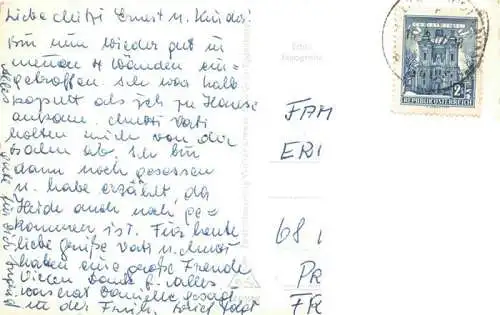 Liebe Mitzi Ernest u. Kinder!
Bin nun wieder gut in
meinen 4 Wänden ein=
getroffen. Ich war halb
kaputt als ich zu Hause
ankam. Mutti Vati
holten mich von der
Bahn ab. Ich bin
dann noch gesessen
u. habe erzählt, da
Heide auch noch ge=
kommen ist. Für heute
liebe Grüße Vati u. Mutti
haben eine große Freude
Vielen Dank f. alles
was hat Danielle gesagt
in der Früh. Brief folgt
Alles gute für dich
FAM
ERI
68
PR
Echte
Fotografie
2.50
REPUBLIK ÖSTERREICH